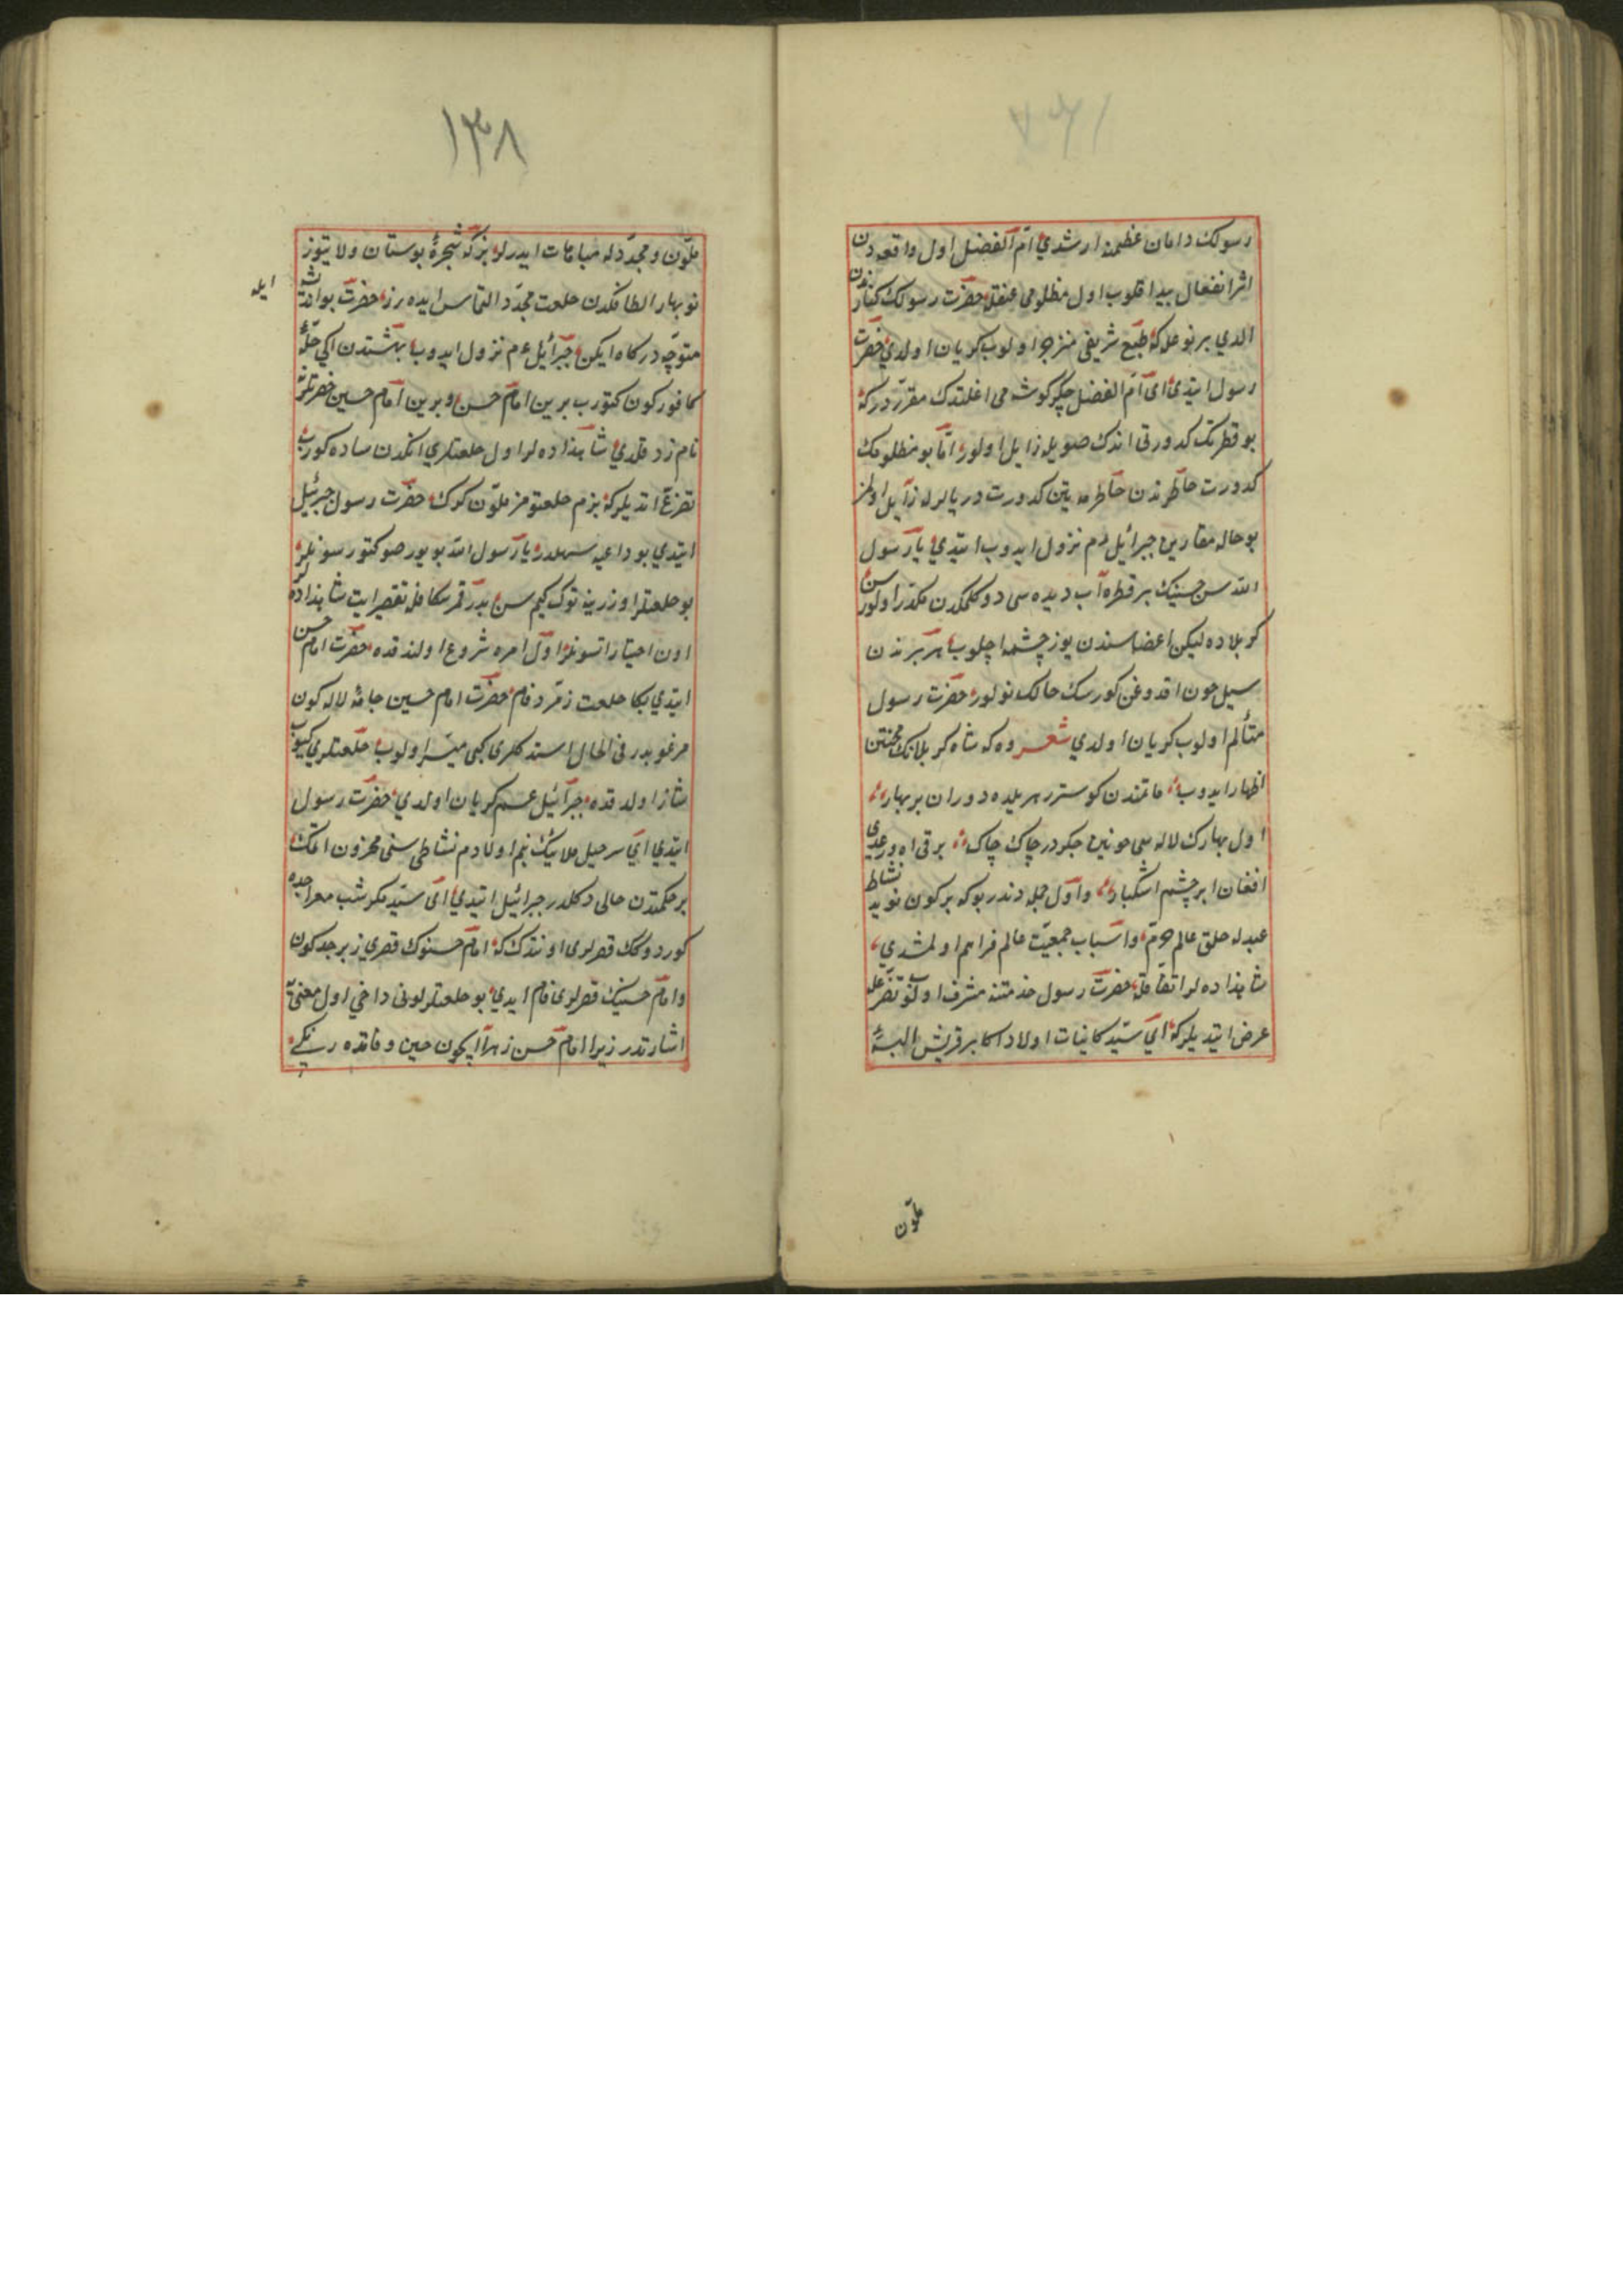 رسولك دامان عظمنه ارشدي ام الفضل اول واقعه دن
اثر انفعال بيدا قلوب اول مظلومی عنفله حضرت رسولك كنارندن
الدي بر نوعله كه طبع شريفی منزجر اولوب كريان اولدي حضرت
رسول ايتدي ای ام الفضل جكر كوشه می اغلتدك مقرردر كه
بو قطرنك كدورتی اندك صويله زايل اولور اما بو مظلومك
كدورت خاطرندن خاطرمه يتن كدورت دريالرله زايل اولمز
بو حاله مقارن جبرائيل ءم نزول ايدوب ايتدي يا رسول
الله سن حسينك بر قطره آب ديده سی دوكلمكدن مكدر اولورسن
كربلاده ليكن اعضاسندن يوز چشمه اچلوب هر برندن
سيل خون اقدوغن كورسك حالك نولور حضرت رسول
متألم اولوب كريان اولدي شعر وه كه شاه كربلانك محنتن
اظهار ايدوب ماتمندن كوسترر هر يلده دوران بر بهار
اول بهارك لاله سی خونين جكردر چاك چاك برقی اه ورعدی
افغان ابر چشم اشكبار واول جمله دندر بو كه بر كون نويد نشاط
عيدله خلق عالم خرم واسباب جمعيت عالم فراهم اولمشدي
شاهزاده لر اتفاقله حضرت رسول خدمتنه مشرف اولوب تضرعله
عرض ايتديلر كه اي سيد كائنات اولاد اكابر قريش البسهٔ
ملون
١٣٨
ملون ومجددله مباهات ايدرلر بز كه شجرهٔ بوستان ولايتوز
نوبهار الطافكدن خلعت مجدد التماس ايده رز حضرت بو اندیشه
ايله
متوجه دركاه ايكن جبرائيل ءم نزول ايدوب بهشتدن اكی حلهٔ
كافوركون كتورب برين امام حسن وبرين امام حسين حضرتلرنه
نامزد قلدي شاهزاده لر اول خلعتلري انكدن ساده كورب
تضرع اتديلر كه بزم خلعتومز ملون كرك حضرت رسول جبرئيل
ايتدي بو داعيه سهلدر يا رسول الله بويور صو كتورسونلر
بو خلعتلر اوزرينه توك كيم سن بدرقه كامله تقصير ايت شاهزاده لر
اون اختيار اتسونلر اول امره شروع اولندقده حضرت امام حسن
ايتدي بكا خلعت زمرد فام حضرت امام حسين جامهٔ لاله كون
مرغوبدر فی الحال استدكلری كبی ميسر اولوب خلعتلري كيوب
شاذ اولدقده جبرائيل عم كريان اولدي حضرت رسول
ايتدي اي سرخيل ملايك بنم اولادم نشاطی سنی محزون اتمك
بر حكمتدن خالی دكلدر جبرائيل ايتدي ای سيد مكر شب معراجده
كوردوكك قصرلری اونتدك كه امام حسنوك قصري زبرجدكون
وامام حسينك قصری لعل فام ايدي بو خلعتلر لونی داخي اول معنی‌يه
اشارتدر زيرا امام حسن زهر ايچون حين وفاتده رنكی